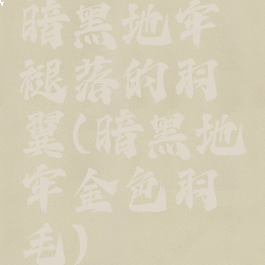 暗黑地牢
褪落的羽
翼(暗黑地
牢金色羽
毛)